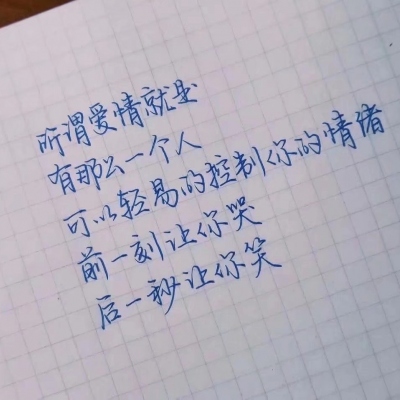 所谓爱情就是
有那么一个人
可以轻易的控制你的情绪
前一刻让你哭
后一秒让你笑